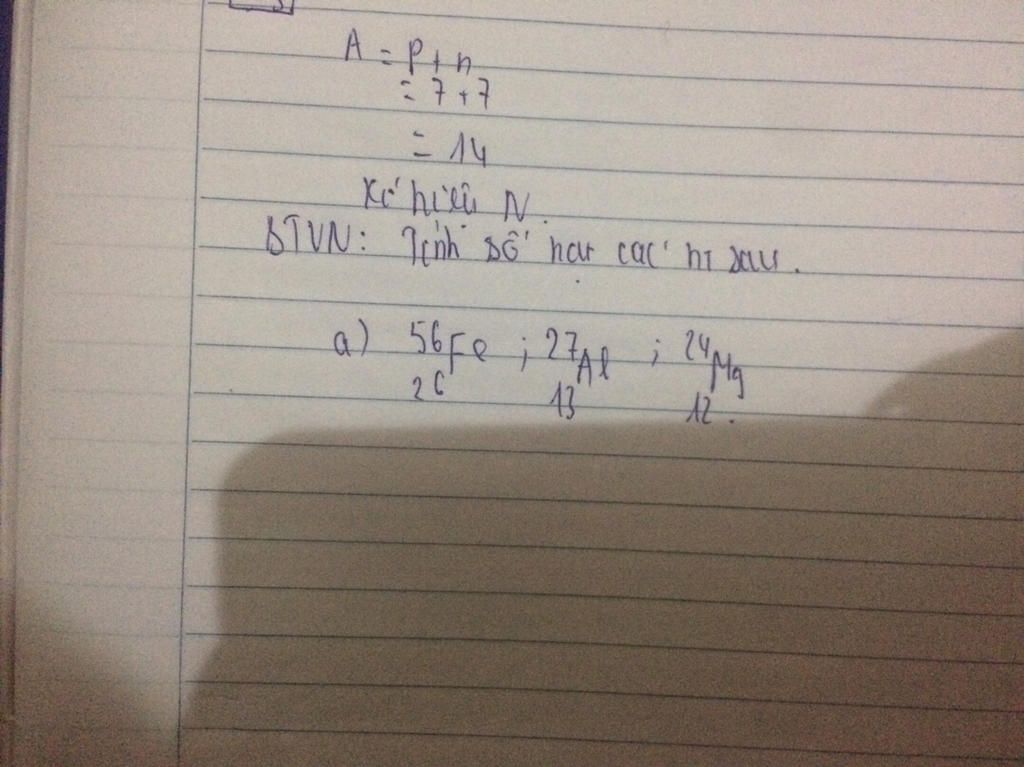 A = p + n
= 7 + 7
= 14
Kí hiệu N.
BTVN: Tính số hạt các nt sau.
a) 56 Fe ; 27 Al ; 24 Mg
26 13 12.